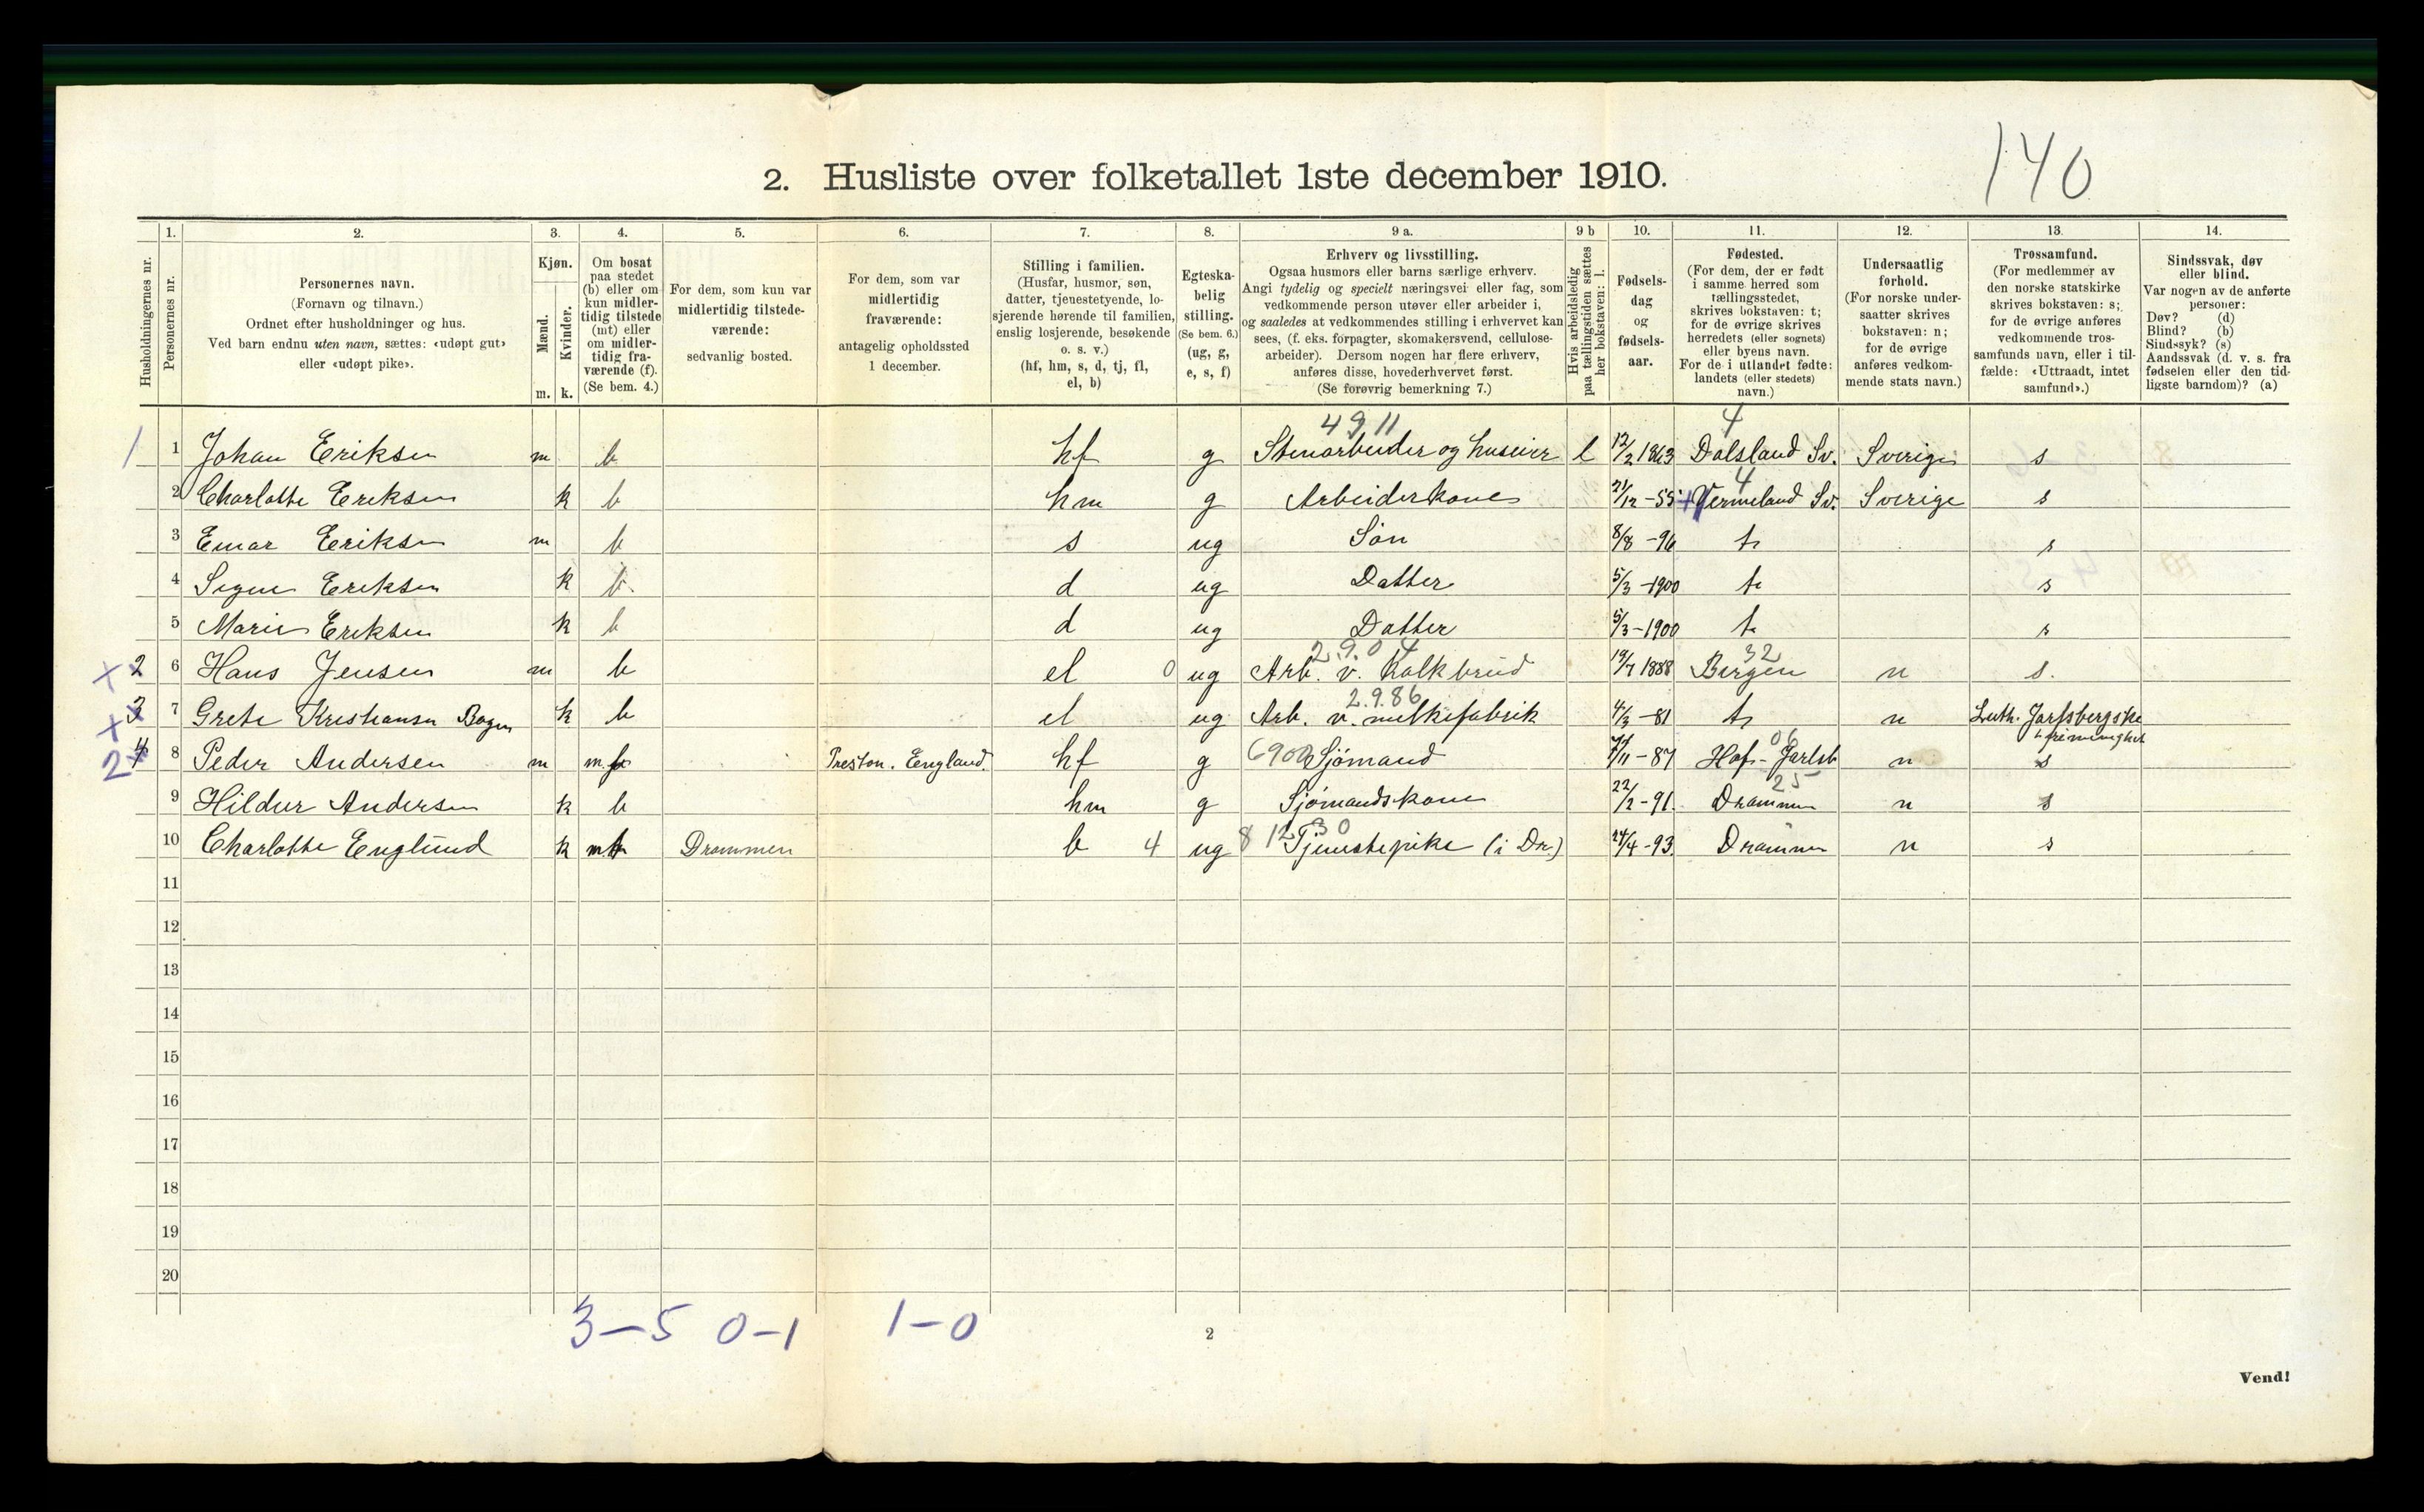 140
2. Husliste over folketallet 1ste december 1910.
Husholdningernes nr.
1.
Personernes nr.
2.
Personernes navn.
(Fornavn og tilnavn.)
Ordnet efter husholdninger og hus.
Ved barn endnu uten navn, sættes: «udøpt gut»
eller «udøpt pike».
3.
Kjøn.
Mænd.
Kvinder.
m. k.
4.
Om bosat
paa stedet
(b) eller om
kun midler-
tidig tilstede
(mt) eller
om midler-
tidig fra-
værende (f).
(Se bem. 4.)
5.
For dem, som kun var
midlertidig tilstede-
værende:
sedvanlig bosted.
6.
For dem, som var
midlertidig
fraværende:
antagelig opholdssted
1 december.
7.
Stilling i familien.
(Husfar, husmor, søn,
datter, tjenestetyende, lo-
sjerende hørende til familien,
enslig losjerende, besøkende
o. s. v.)
(hf, hm, s, d, tj, fl,
el, b)
8.
Egteska-
belig
stilling.
(Se bem. 6.)
(ug, g,
e, s, f)
9 a.
Erhverv og livsstilling.
Ogsaa husmors eller barns særlige erhverv.
Angi tydelig og specielt næringsvei eller fag, som
vedkommende person utøver eller arbeider i,
og saaledes at vedkommendes stilling i erhvervet kan
sees, (f. eks. forpagter, skomakersvend, cellulose-
arbeider). Dersom nogen har flere erhverv,
anføres disse, hovederhvervet først.
(Se forøvrig bemerkning 7.)
9 b
Hvis arbeidsledig
paa tællingstiden sættes
her bokstaven: l.
10.
Fødsels-
dag
og
fødsels-
aar.
11.
Fødested.
(For dem, der er født
i samme herred som
tællingsstedet,
skrives bokstaven: t;
for de øvrige skrives
herredets (eller sognets)
eller byens navn.
For de i utlandet fødte:
landets (eller stedets)
navn.)
12.
Undersaatlig
forhold.
(For norske under-
saatter skrives
bokstaven: n;
for de øvrige
anføres vedkom-
mende stats navn.)
13.
Trossamfund.
(For medlemmer av
den norske statskirke
skrives bokstaven: s;
for de øvrige anføres
vedkommende tros-
samfunds navn, eller i til-
fælde: «Uttraadt, intet
samfund».)
14.
Sindssvak, døv
eller blind.
Var nogen av de anførte
personer:
Døv? (d)
Blind? (b)
Sindssyk? (s)
Aandssvak (d. v. s. fra
fødselen eller den tid-
ligste barndom)? (a)
4911 4
1 1 Johan Eriksen m b hf g Stenarbeider og huseier l 12/2 1863 Dalsland Sv. Sverige s
4
2 Charlotte Eriksen k b hm g Arbeiderkone 21/12 -55 + Vermeland Sv. Sverige s
3 Einar Eriksen m b s ug Søn 8/8 -96 t s
4 Signe Eriksen k b d ug Datter 5/3 -1900 t s
5 Marie Eriksen k b d ug Datter 5/3 -1900 t s
2.9.04 32
x 2 6 Hans Jensen m b el 0 ug Arb. v. Kalkbrud 19/7 1888 Bergen n s.
2.9.86
x 3 7 Grete Kristiansen Bogen k b el ug Arb. v. melkefabrik 4/3 -81 t n Luth. Jarlsbergske
frimenighet
06
2 4 8 Peder Andersen m Preston. England. hf g 6900 Sjømand /11 -87 Hof - Jarlsb n s
25
9 Hildur Andersen k b hm g Sjømandskone 22/2 -91. Drammen n s
10 Charlotte Englund k Drammen b 4 ug 8 1230 Tjenestepike (i Dr.) 24/4 -93. Drammen n s
11
12
13
14
15
16
17
18
19
20
3-5 0-1 1-0
2
Vend!